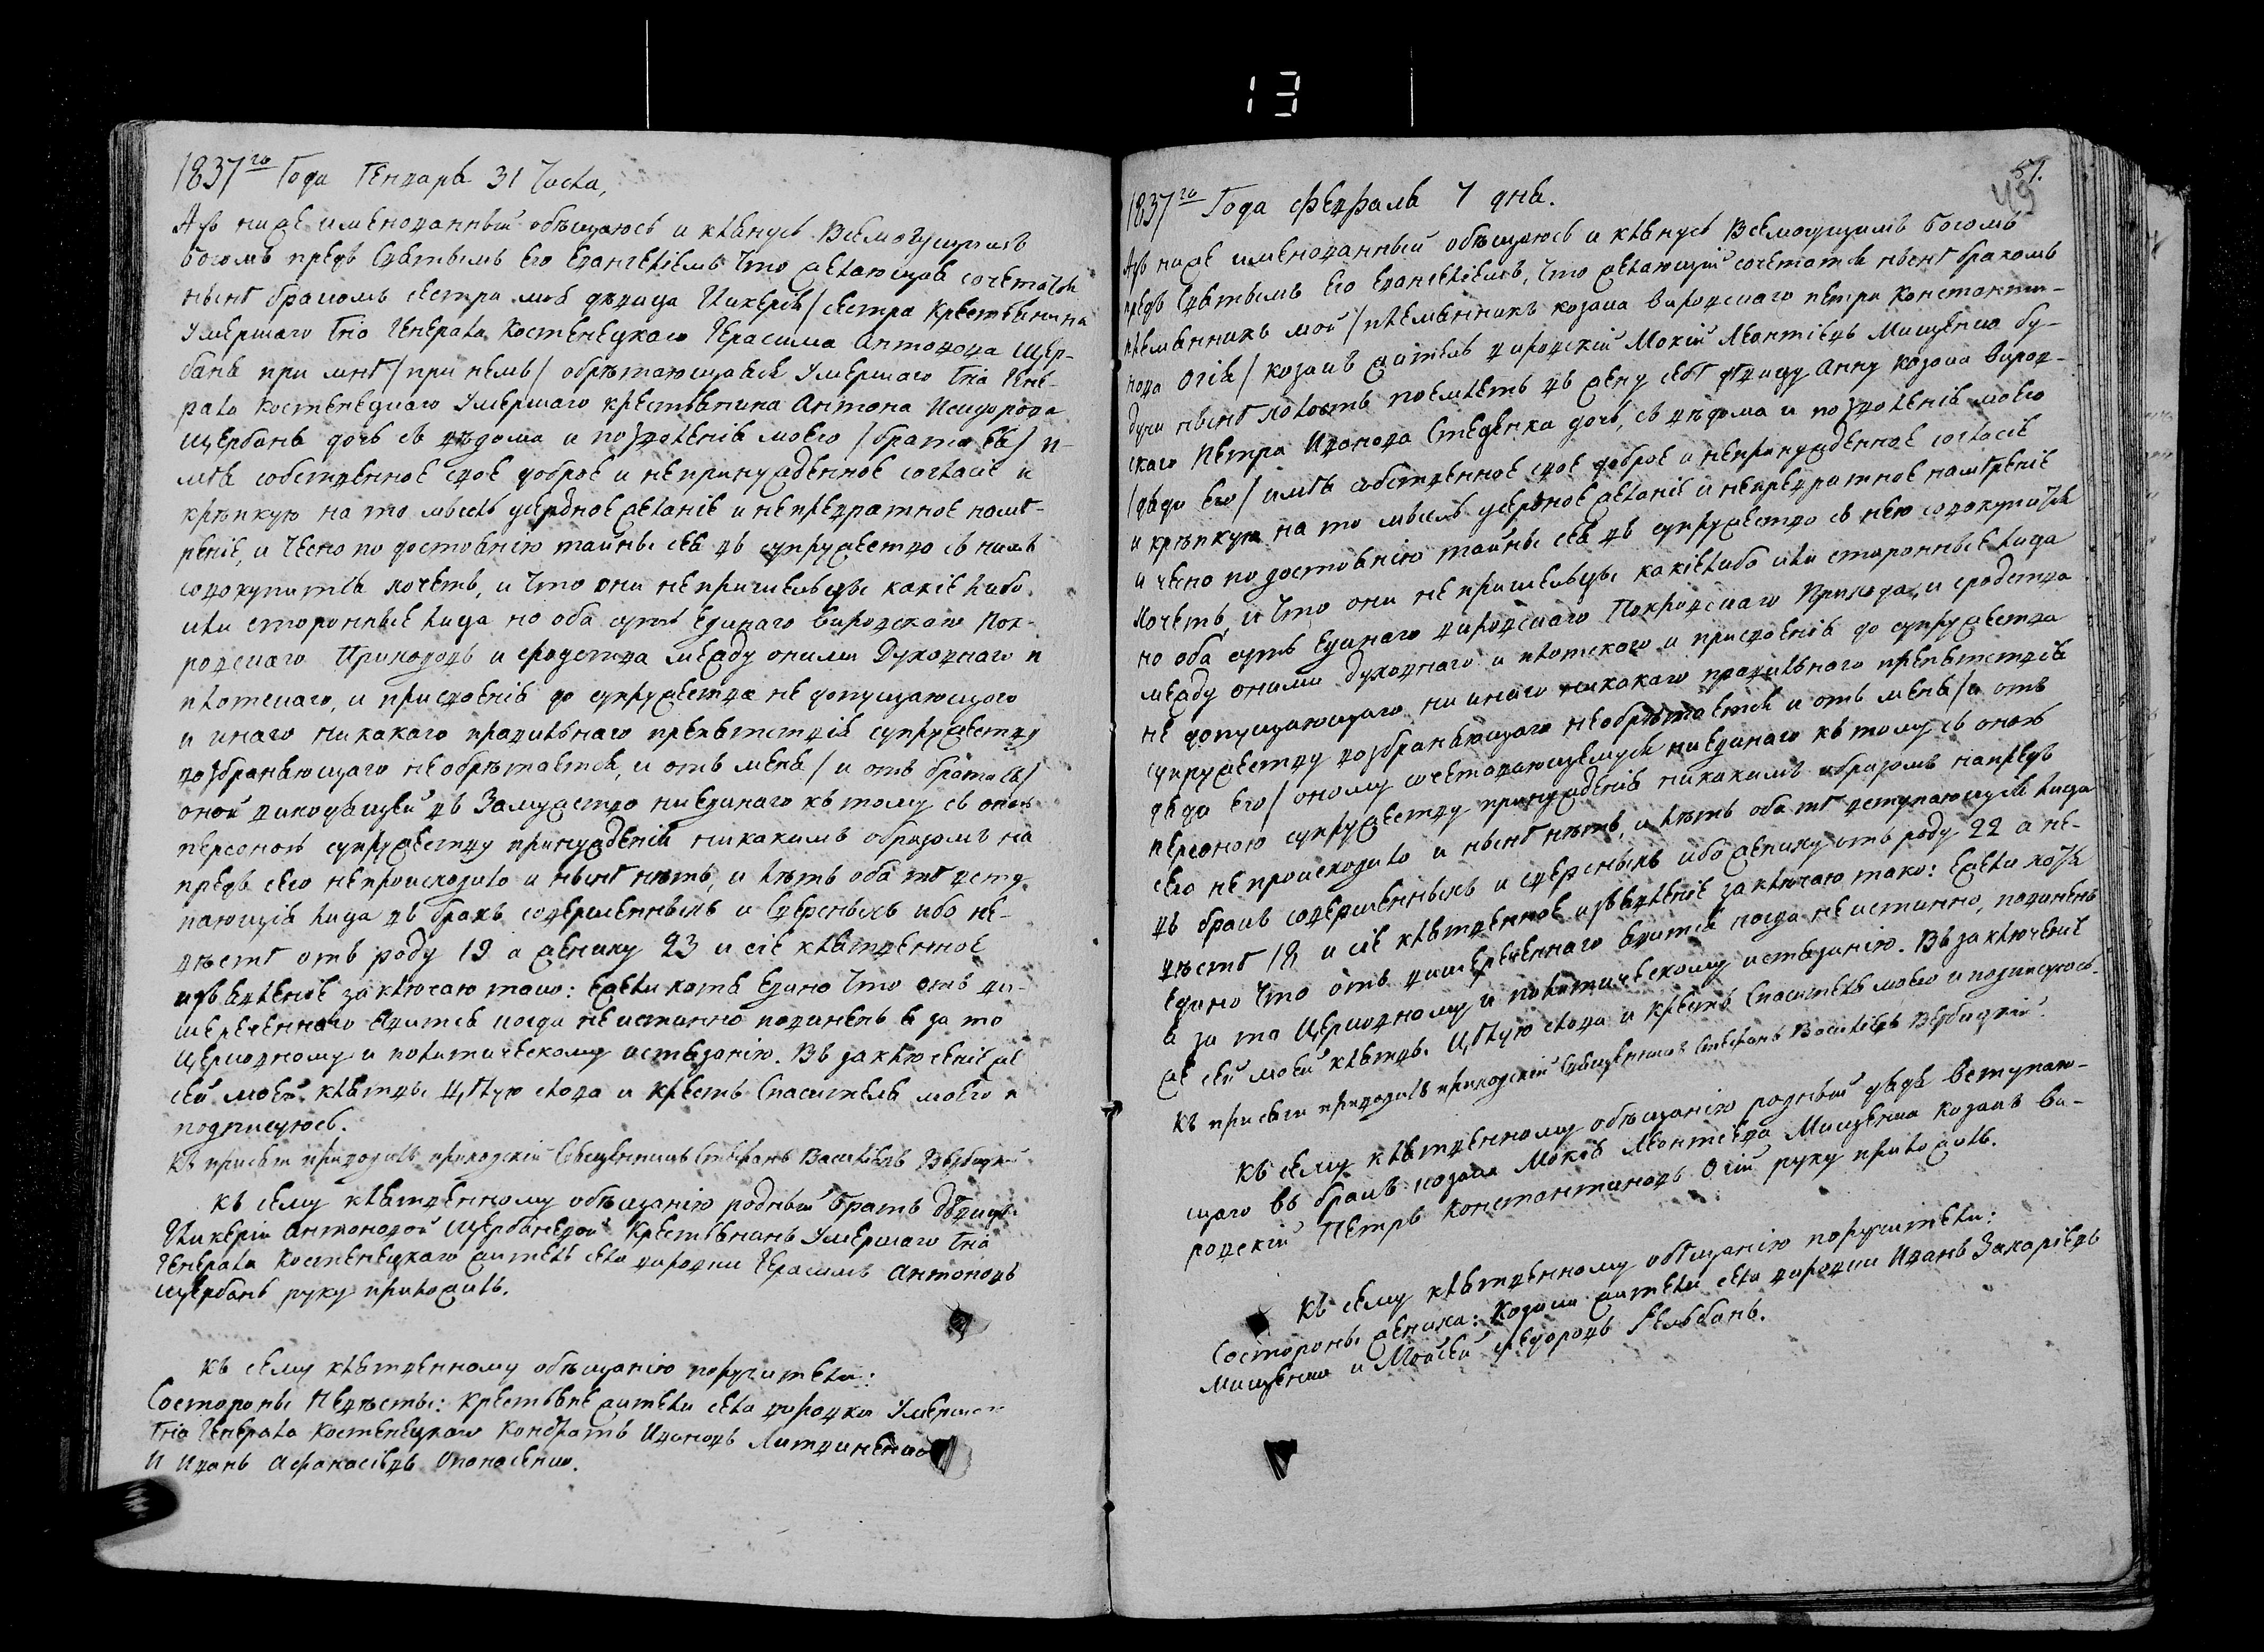 13
1837го Года Генваря 31 Числа,
Азъ ниже именованный обѣщаюсь и клянусь Всемогущимъ
Богомъ предъ Святымъ Его Евангелiемъ что желающая сочетатся
нынѣ бракомъ сестра моя дѣвица Гликерiя / сестра Крестьянина
Умершаго Гна Генерала Костенецкаго Герасима Антонова Щер-
баня при мнѣ / при немъ / обрѣтающаяся Умершаго Гна Гене-
рала Костенецкаго Умершаго крестьянина Антона Исидорова
Щербаня дочь съ вѣдома и позволенiя моего / брата ея / и-
мѣя собственное свое доброе и непринужденное согласiе и
крѣпкую на то мысль усердное желанiе и непревратное намѣ-
ренiе, и чесно по достоянiю тайны сея въ супружество съ нимъ
совокупится хочетъ, и что они непришельцы какiе либо
или стороннiе лица но оба суть Единаго Вировскаго Пок-
ровскаго Прихода и сродства между оними Духовнаго и
плотскаго, и присвоенiя до супружества не допущающаго
и инаго никакаго правильнаго препятствiя супружеству
возбраняющаго необрѣтается, и отъ меня / и отъ брата ея /
оной виходящей въ Замужество ниединаго къ тому съ оною
персоною супружеству принужденiя никакимъ образомъ на
предъ сего непроисходило и нынѣ нѣтъ, и лѣтъ оба тѣ всту-
пающiя лица въ бракъ совершеннымъ и Сверснымъ ибо не-
вѣстѣ отъ роду 19 а жениху 23 и сiе клятвенное
изъявленiе заключаю тако: Ежели хотя Едино что отъ ви-
шереченнаго Явится когда неистинно повиненъ я за то
Церковному и политическому истязанiю. Въ заключенiе же
сей моей клятвы Цѣлую слова и крестъ Спасителя моего и
подписуюсь.
Къ присяги приводилъ приходскiй Священникъ Стефанъ Василiевъ Вербицкiй
Къ сему клятвенному обѣщанiю родный братъ Дѣвицы
Гликерiи Антоновой Щербаневой Крестьянинъ Умершаго Гна
Генерала Костенецкаго житель села Вировки Герасимъ Антоновъ
Щербань руку приложилъ.
Къ сему клятвенному обѣщанiю поручители:
Состороны Невѣсты: Крестьяне жители села Вировки Умершаго
Гна Генерала Костенецкаго Кондратъ Ивановъ Литвиненко
И Иванъ Афанасiевъ Опанасенко.
51.
49
1837го Года Февраля 7 дня.
Азъ ниже именованный обѣщаюсь и клянусь Всемогущимъ Богомъ
предъ Святымъ Его Евангелiемъ, что желающiй сочетатся нынѣ бракомъ
племянникъ мой / племянникъ козака Вировскаго Петра Константи-
нова Огiя / козакъ житель Вировскiй Мокiй Леонтiевъ Мищенко бу-
дучи нынѣ холостъ поемлетъ въ жену себѣ дѣвицу Анну козака Виров-
скаго Петра Иванова Стеценка дочь, съ вѣдома и позволенiя моего
/ дяди его / имѣя собственное свое доброе и непринужденное согласiе
и крѣпкую на то мысль усердное желанiе и непревратное намѣренiе
и чесно по достоянiю тайны сея въ супружество съ нею совокупится
хочетъ, и что они не пришельцы какiелибо или стороннiе лица
но оба суть Единаго Вировскаго Покровскаго Прихода, и сродства
между оними Духовнаго и плотскаго и присвоенiя до супружества
не допущающаго ни инаго никакаго правильнаго препятствiя
супружеству возбраняющаго необрѣтается и отъ меня / и отъ
дяди его / оному сочетовающемуся ниединаго къ тому съ оною
персоною супружеству принужденiя никакимъ образомъ напредъ
сего не происходило и нынѣ нѣтъ, и лѣтъ оба тѣ вступающiя лица
въ бракъ совершеннымъ и сверснымъ ибо жениху отъ роду 22 а не-
вѣстѣ 18 и сiе клятвенное изъявленiе заключаю тако: Ежели хотя
едино что отъ вишереченнаго Явится когда не истинно, повиненъ
я за то Церковному и политическому истязанiю. Въ заключенiе
же сей моей клятвы Цѣлую слова и крестъ Спасителя моего и подписуюсь.
Къ присяги приводилъ приходскiй Священникъ Стефанъ Василiевъ Вербицкiй.
Къ сему клятвенному обѣщанiю родный дядя Вступаю-
щаго въ бракъ козака Мокiя Леонтiева Мищенка козакъ Ви-
ровскiй Петръ Константиновъ Огiй руку приложилъ.
Къ сему клятвенному обѣщанiю поручители:
Состороны жениха: Козаки жители села Вировки Иванъ Захарiевъ
Мищенко и Моисей Федоровъ Гельбань.